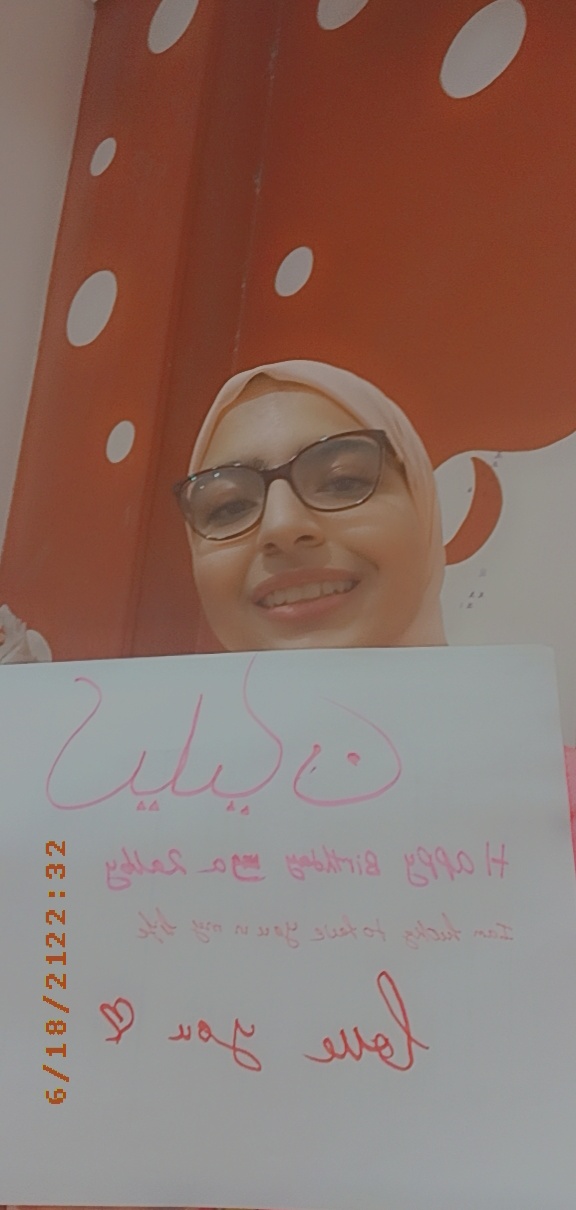 ليليان
Happy Birthday ya 2alby
I am lucky to have you in my life
love you ♡
6/18/2122:32